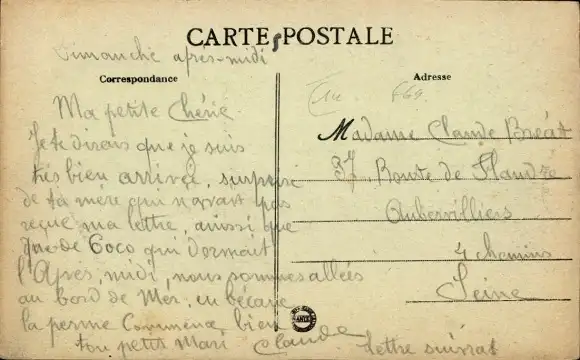 CARTE POSTALE
Dimanche après-midi
Correspondance
Ma petite Chérie
Je te dirais que je suis
très bien arrivée, surprise
de ta mère qui n'avait pas
reçue ma lettre, aussi que
de Coco qui dormait
l'Après, midi, nous sommes allées
au bord de Mer, en bécane
la perme Commence, bien
ton petit Mari Claude
lettre suivrat
Adresse
Madame Claude Bréat
37 Route de Flandre
Aubervilliers
4 chemins
Seine